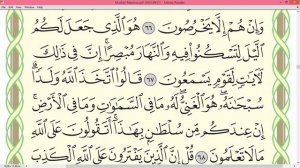 وَإِنْ هُمْ إِلَّا يَخْرُصُونَ ٦٦ هُوَ الَّذِي جَعَلَ لَكُمُ
الَّيْلَ لِتَسْكُنُوا فِيهِ وَالنَّهَارَ مُبْصِرًا إِنَّ فِي ذَٰلِكَ
لَآيَاتٍ لِقَوْمٍ يَسْمَعُونَ ٦٧ قَالُوا اتَّخَذَ اللَّهُ وَلَدًا
سُبْحَانَهُ هُوَ الْغَنِيُّ لَهُ مَا فِي السَّمَاوَاتِ وَمَا فِي الْأَرْضِ
إِنْ عِنْدَكُمْ مِنْ سُلْطَانٍ بِهَٰذَا أَتَقُولُونَ عَلَى اللَّهِ
مَا لَا تَعْلَمُونَ ٦٨ قُلْ إِنَّ الَّذِينَ يَفْتَرُونَ عَلَى اللَّهِ الْكَذِبَ